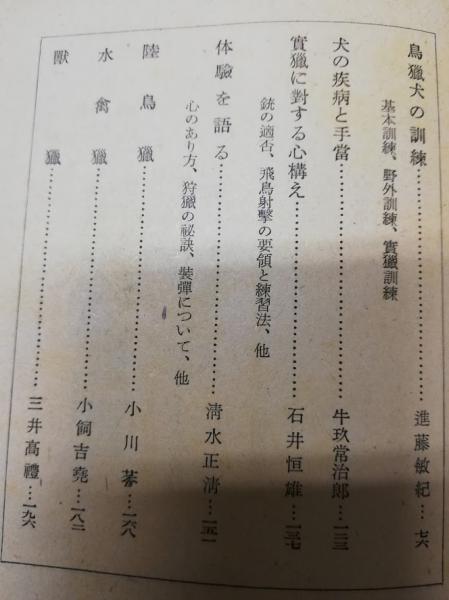 鳥獵犬の訓練……進藤敏紀…七六
基本訓練、野外訓練、實獵訓練
犬の疾病と手當……牛玖常治郎…一二三
實獵に對する心構え……石井恒雄…一三七
銃の適否、飛鳥射擊の要領と練習法、他
体驗を語る……淸水正淸…一五一
心のあり方、狩獵の祕訣、裝彈について、他
陸鳥獵……小川 …一六八
水禽獵……小飼吉堯…一八二
獸獵……三井高禮…一九六